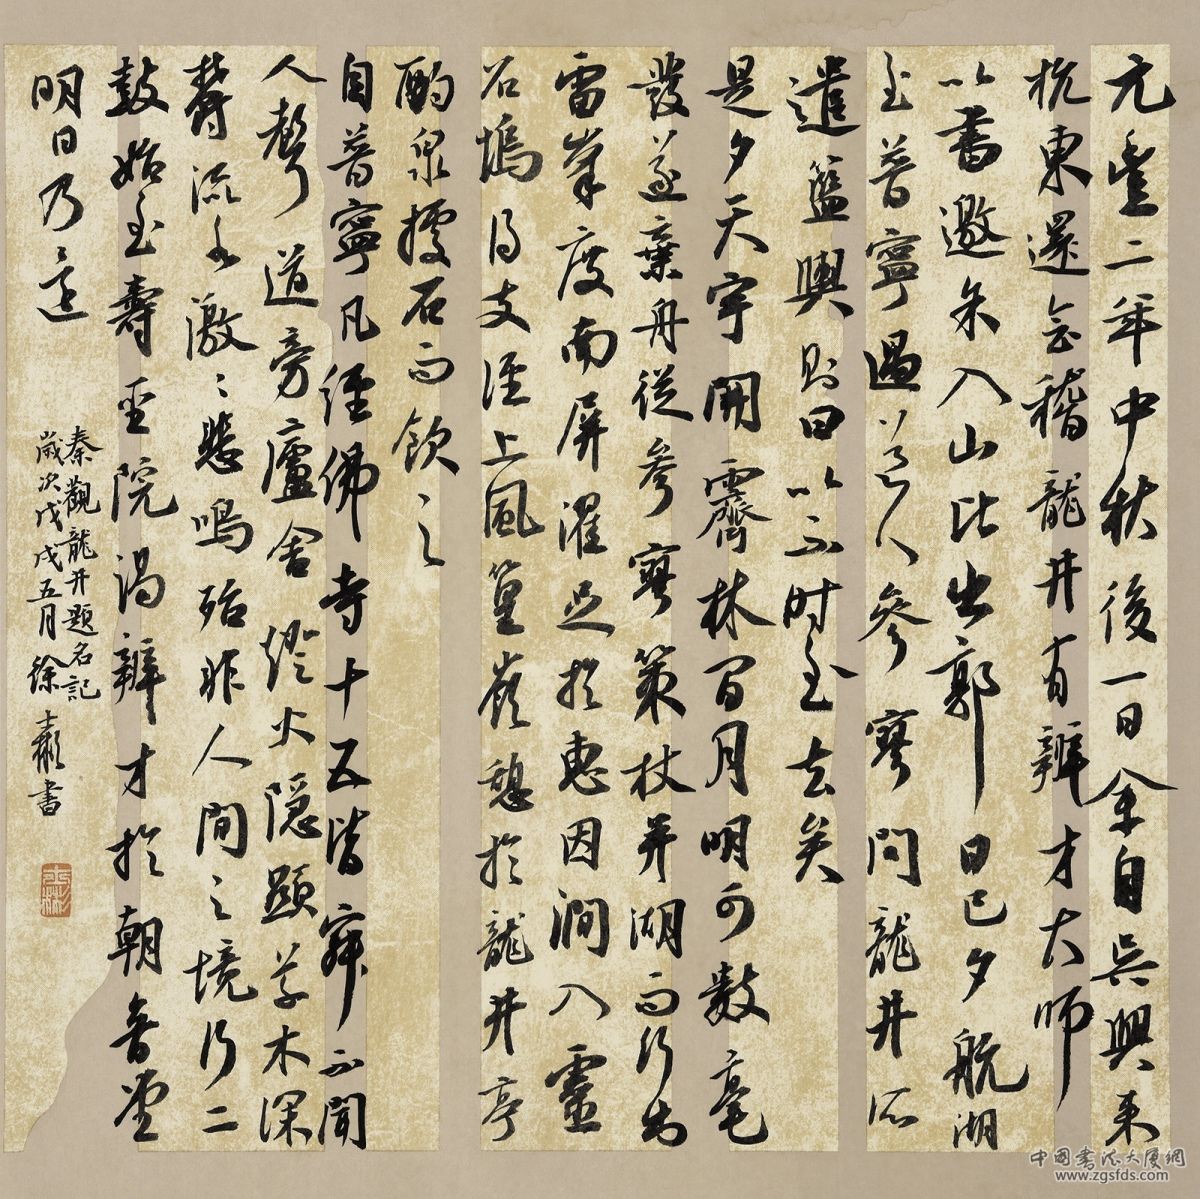 元豐二年中秋後一日余自吳興来
杭東還會稽龍井有辨才大師
以書邀余入山比出郭日已夕航湖
至普寧遇道人參寥問龍井所
遣籃輿則曰以不時至去矣
是夕天宇開霽林間月明可數毫
髮遂棄舟從參寥策杖並湖而行出
雷峯度南屏濯足於惠因澗入靈
石塢得支徑上風篁嶺憩於龍井亭
酌泉據石而飲之
自普寧凡經佛寺十五皆寂不聞
人聲道旁廬舍燈火隱顯草木深
鬱流水激〻悲鳴殆非人間之境行二
鼓始至壽聖院謁辨才於朝音堂
明日乃還
秦觀龍井題名記
歲次戊戌五月徐士彬書
中国書法大厦網
www.zgsfds.com